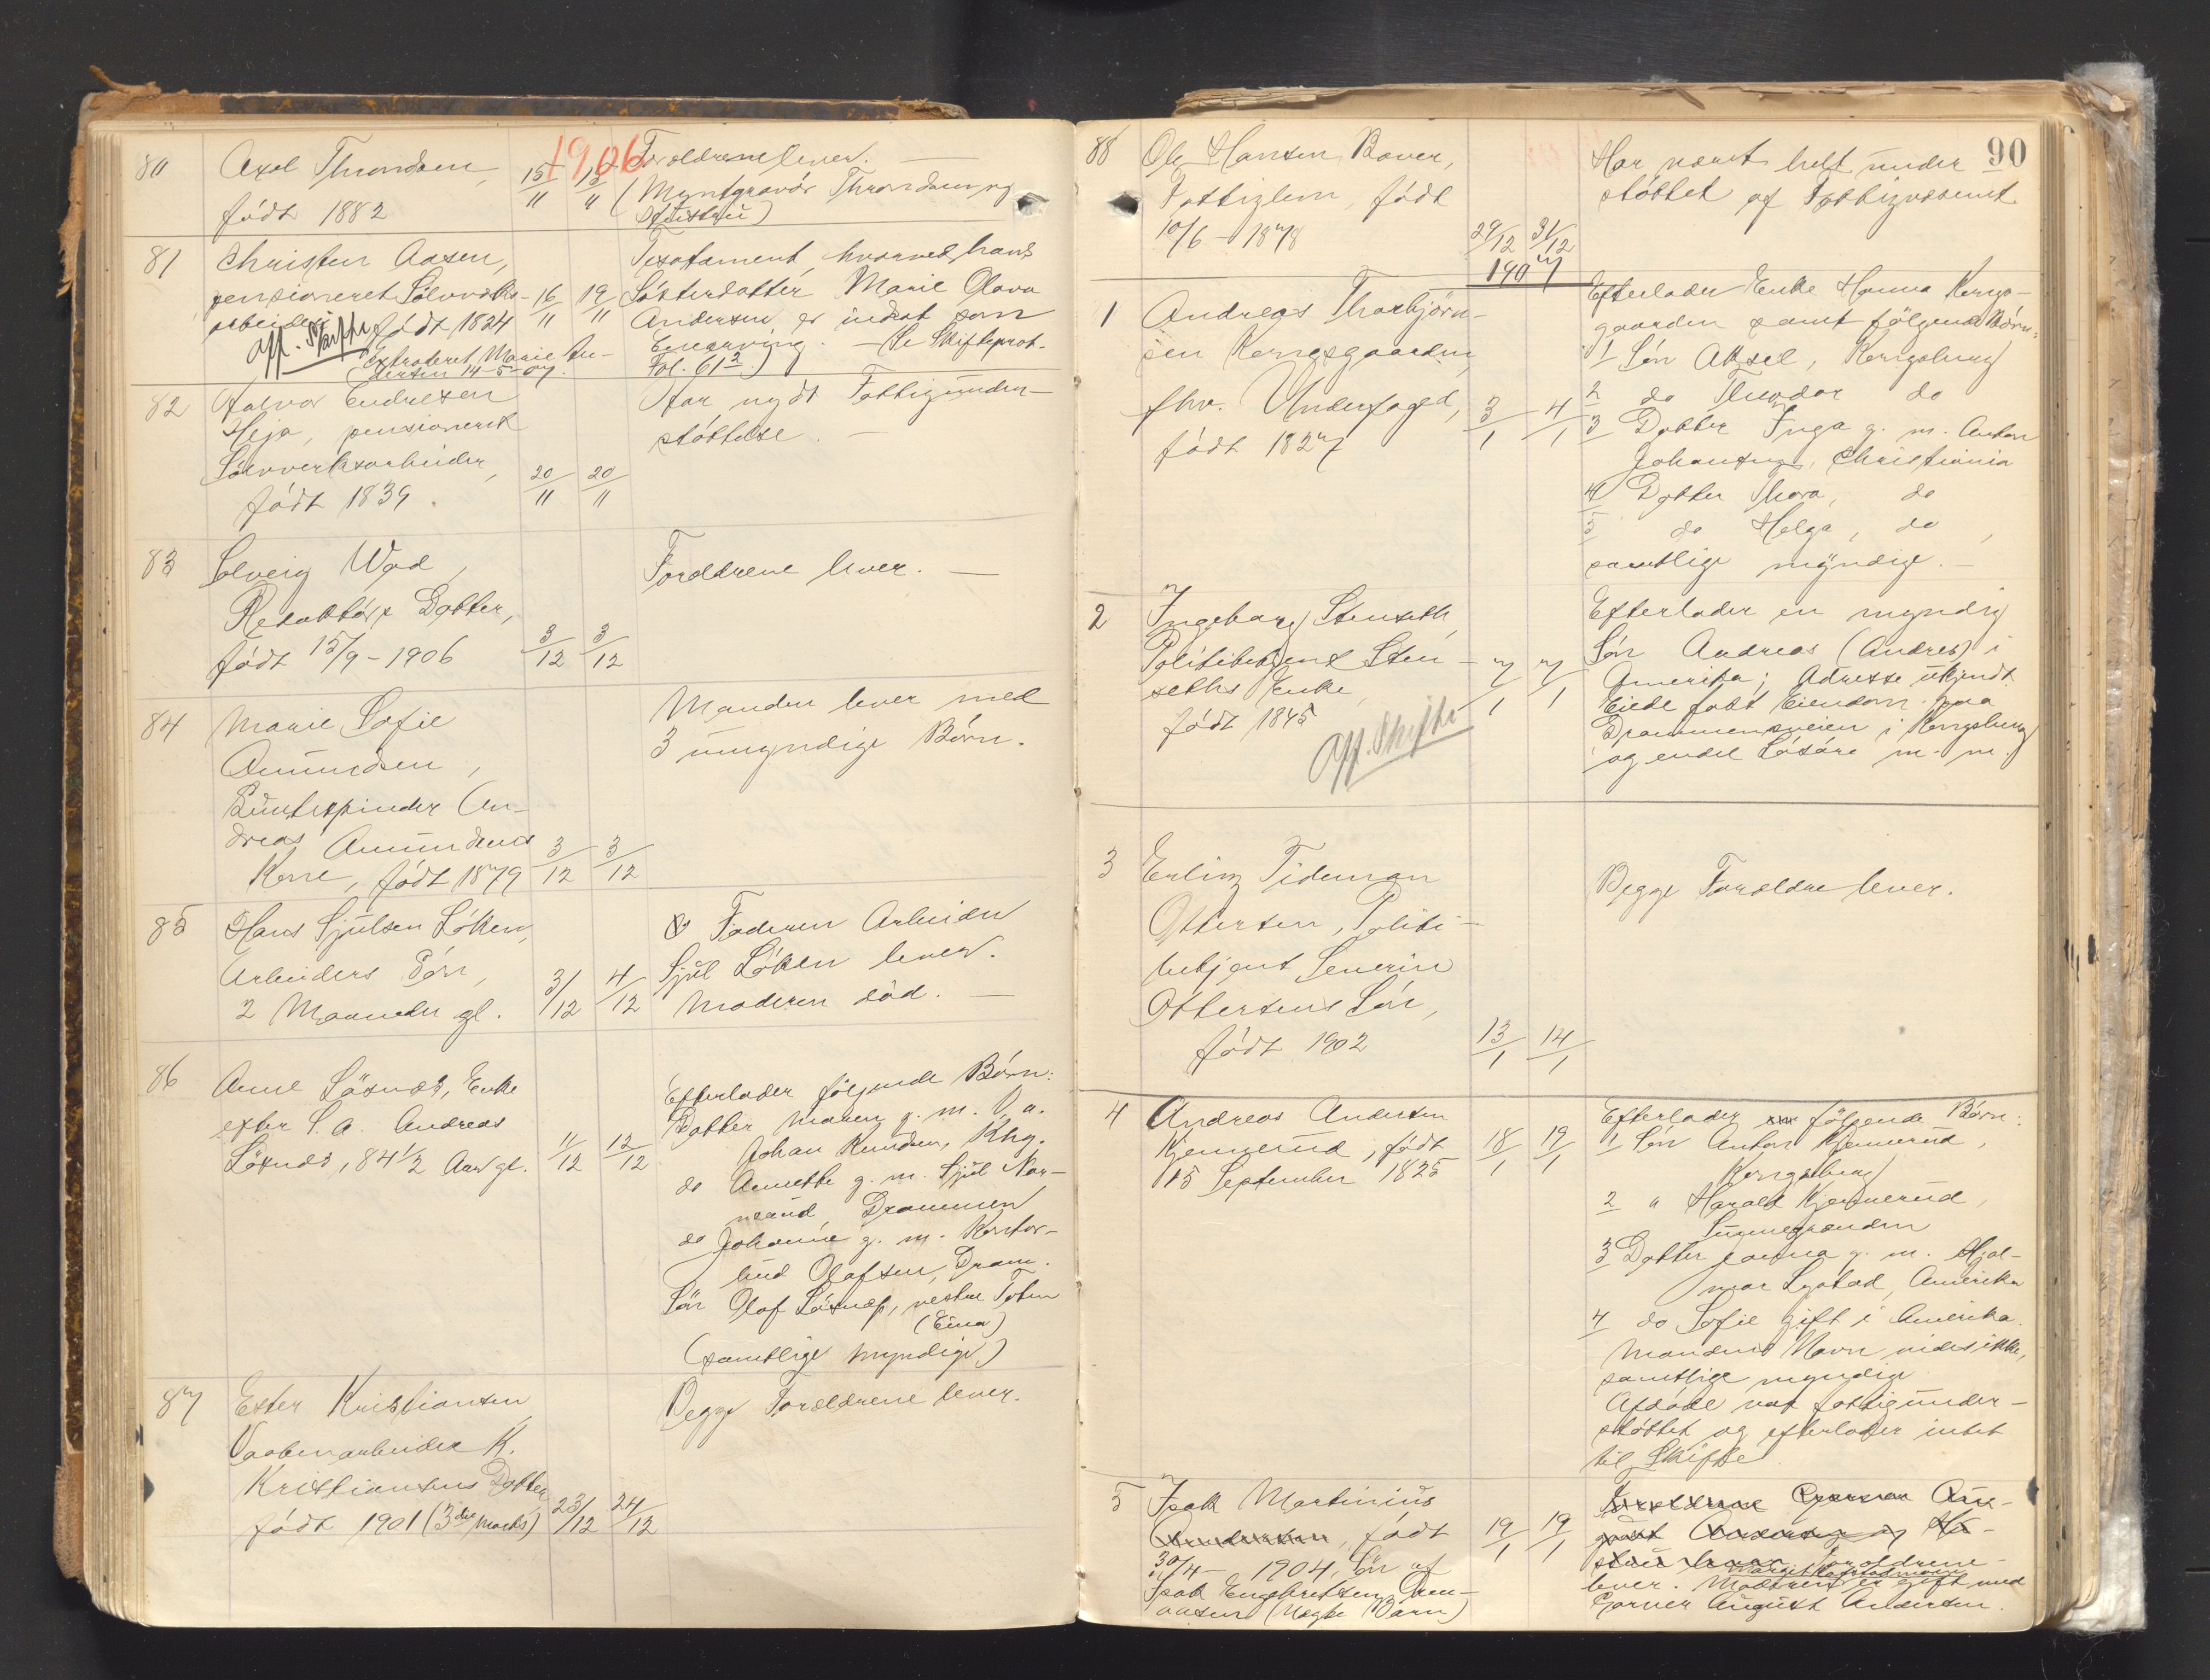 1906
80 Axel Throndsen,
født 1882
15/11 15/11
Forældrene lever.
(Myntgravör Throndsen og
Hustru)
81 Christen Aasen,
pensioneret Sölvverks-
arbeider, født 1824
16/11 19/11
Aff. Skifte
Extraderet Marie An-
dersen 14-5-07.
Testament hvorved hans
Søsterdatter Marie Olava
Andersen er indsat som
Enearving. - (Se Skifteprot.
Fol. 612.)
82 Halvor Endresen
Heja, pensioneret
Sölvverksarbeider,
født 1839.
20/11 20/11
Har nydt Fattigunder-
støttelse.
83 Solveig Wad,
Redaktørs Datter,
født 15/9 - 1906
3/12 3/12
Forældrene lever.
84 Marie Sofie
Amundsen,
Buntespinder An-
dreas Amundsens
Kone, født 1879
3/12 3/12
Manden lever med
3 umyndige Börn.
85 Hans Sjulsen Løken,
Arbeiders Søn,
2 Maaneder gl.
3/12 4/12
Faderen Arbeider
Sjul Løken lever.
Moderen død.
86 Anne Løsnæs, Enke
efter S. a. Andreas
Løsnæs, 84 1/2 Aar gl.
11/12 12/12
Efterlader følgende Børn:
Datter Maren g. m. V. a.
Johan Knudsen, Kbg.
do Annette g. m. Sjul
Drammen
do Johanne g. m. Kontor-
bud Olafsen, Dram.
Søn Olaf Løsnæs, vestre Toten
(Eina)
(samtlige myndige)
87 Ester Kristiansen
Vaabenarbeider K.
Kristiansens Datter
født 1901 (3die Marts)
23/12 24/12
Begge Forældrene lever.
90
88 Ole Hansen Bover,
Fattiglem, født
10/6 - 1878
29/12 31/12
Har været helt under
støttet af Fattigvæsenet.
1907
1 Andreas Thorbjørn-
sen Kongsgaarden,
fhv. Underfoged,
født 1827
3/1 4/1
Efterlader Enke Hanna Kongs-
gaarden samt følgende Børn:
1 Søn Aksel, Kongsberg
2 do Theodor do
3 Datter Inga g. m. Anton
Johansen, Christiania
4 Datter Thora, do
5 do Helga, do,
samtlige myndige.
2 Ingeborg Stenseth
Politibetjent Sten-
seths Enke,
født 1845
7/1 7/1
Aff. Skifte
Efterlader en myndig
Søn Andreas (Andrew) i
Amerika; Adresse ukjendt.
Eiede fast Eiendom paa
Drammensveien i Kongsberg
og endel Løsøre m. m.
3 Erling Tideman
Ottersen, Politi-
betjent Severin
Ottersens Søn,
født 1902
13/1 14/1
Begge Forældre lever.
4 Andreas Andersen
Kjennerud, født
15 September 1825
18/1 19/1
Efterlader følgende Børn:
1 Søn Anton Kjennerud,
Kongsberg
2 " Harald Kjennerud,
3 Datter g. m. Hjal-
mar Amerika
4 do Sofie gift i Amerika.
Mandens Navn vides ikke,
samtlige myndige
Afdøde var fattigunder-
støttet og efterlader intet
til Skifte.
5 Isak Martinius
Andersen, født
30/4 - 1904, Søn af
Isak Engebretsen
(Uægte Barn)
19/1 19/1
Forældrene
lever. Moderen er gift med
Garver August Andersen.